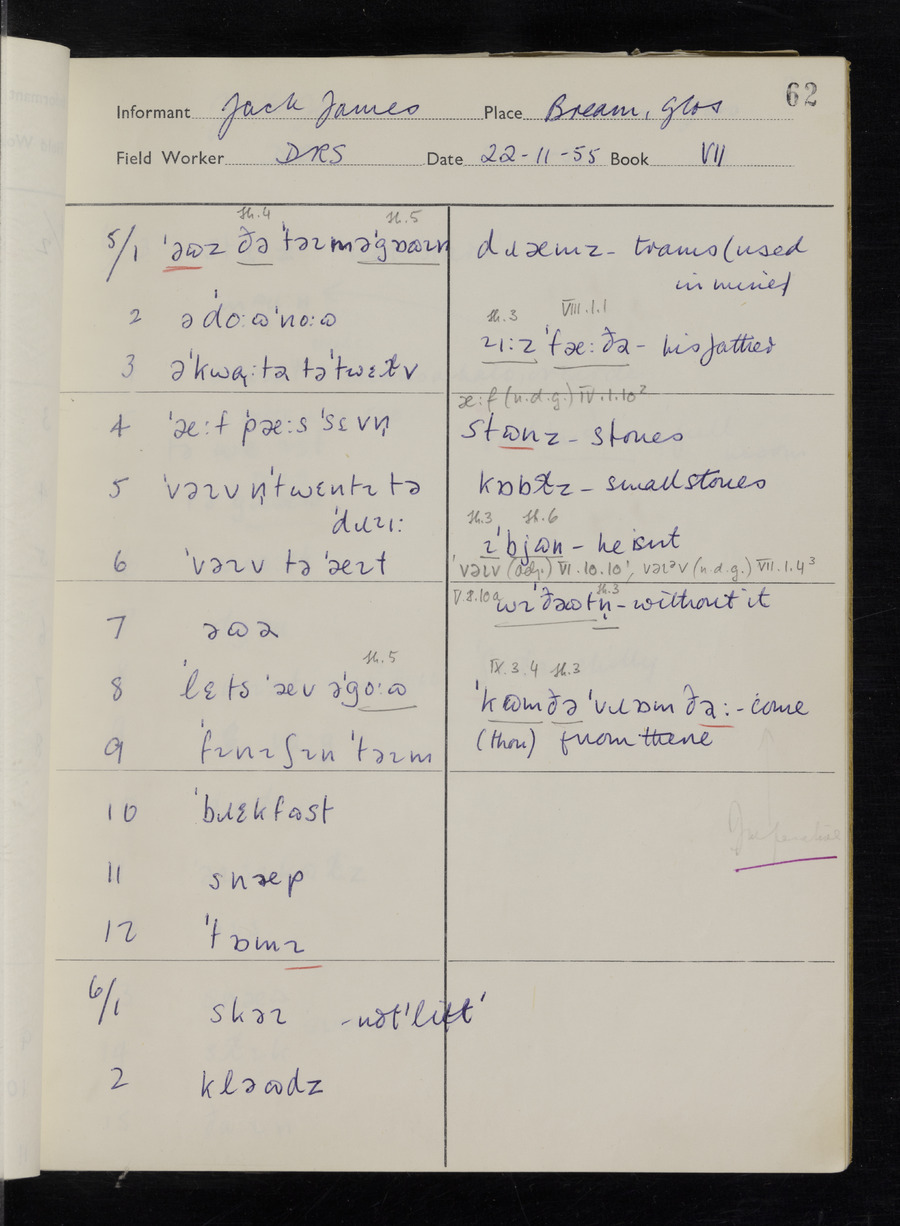 62
Informant Jack James Place Bream, Glos
Field Worker DRS Date 22-11-55 Book VII
sh.4 sh.5
5/1 ˈəɷz ðə ˈtəɪməˈgɒɷɪn
2 ə ˈdoːɷˈnoːɷ
3 əˈkwɑːtə təˈtwɛɫv
4 ˈæːf ˈpæːs ˈsɛvn̩
5 ˈvəɪv n̩ˈtwɛntɪ tə
ˈdɹɪiː
6 ˈvəɪv tə ˈæɪt
7 əɷə
sh.5
8 ˈlɛts ˈæv əˈgoːɷ
9 ˈfɪnɪʃɪn ˈtəɪm
10 ˈbɹɛkfəst
11 snæp
12 ˈtɒmɪ
6/1 skəɪ - not 'lift'
2 kləɷdz
dɹæmz - trams (used
in mines)
sh.3 VIII.1.1
ɪiːz ˈfæːðə - his father
æːf (n.d.g.) IV.1.10²
stɷnz - stones
kɒbɫz - small stones
sh.3 sh.6
ɪˈbjɷn - he isn't
ˈvəɪv (adj.) VI.10.10¹, vəɪᵊv (n.d.g.) VII.1.4³
V.8.10a sh.3
wɪˈðəɷtn̩ - without it
IX.3.4 sh.3
ˈkɷmðə ˈvɹɒm ðəː - come
(thou) from there
Imperative